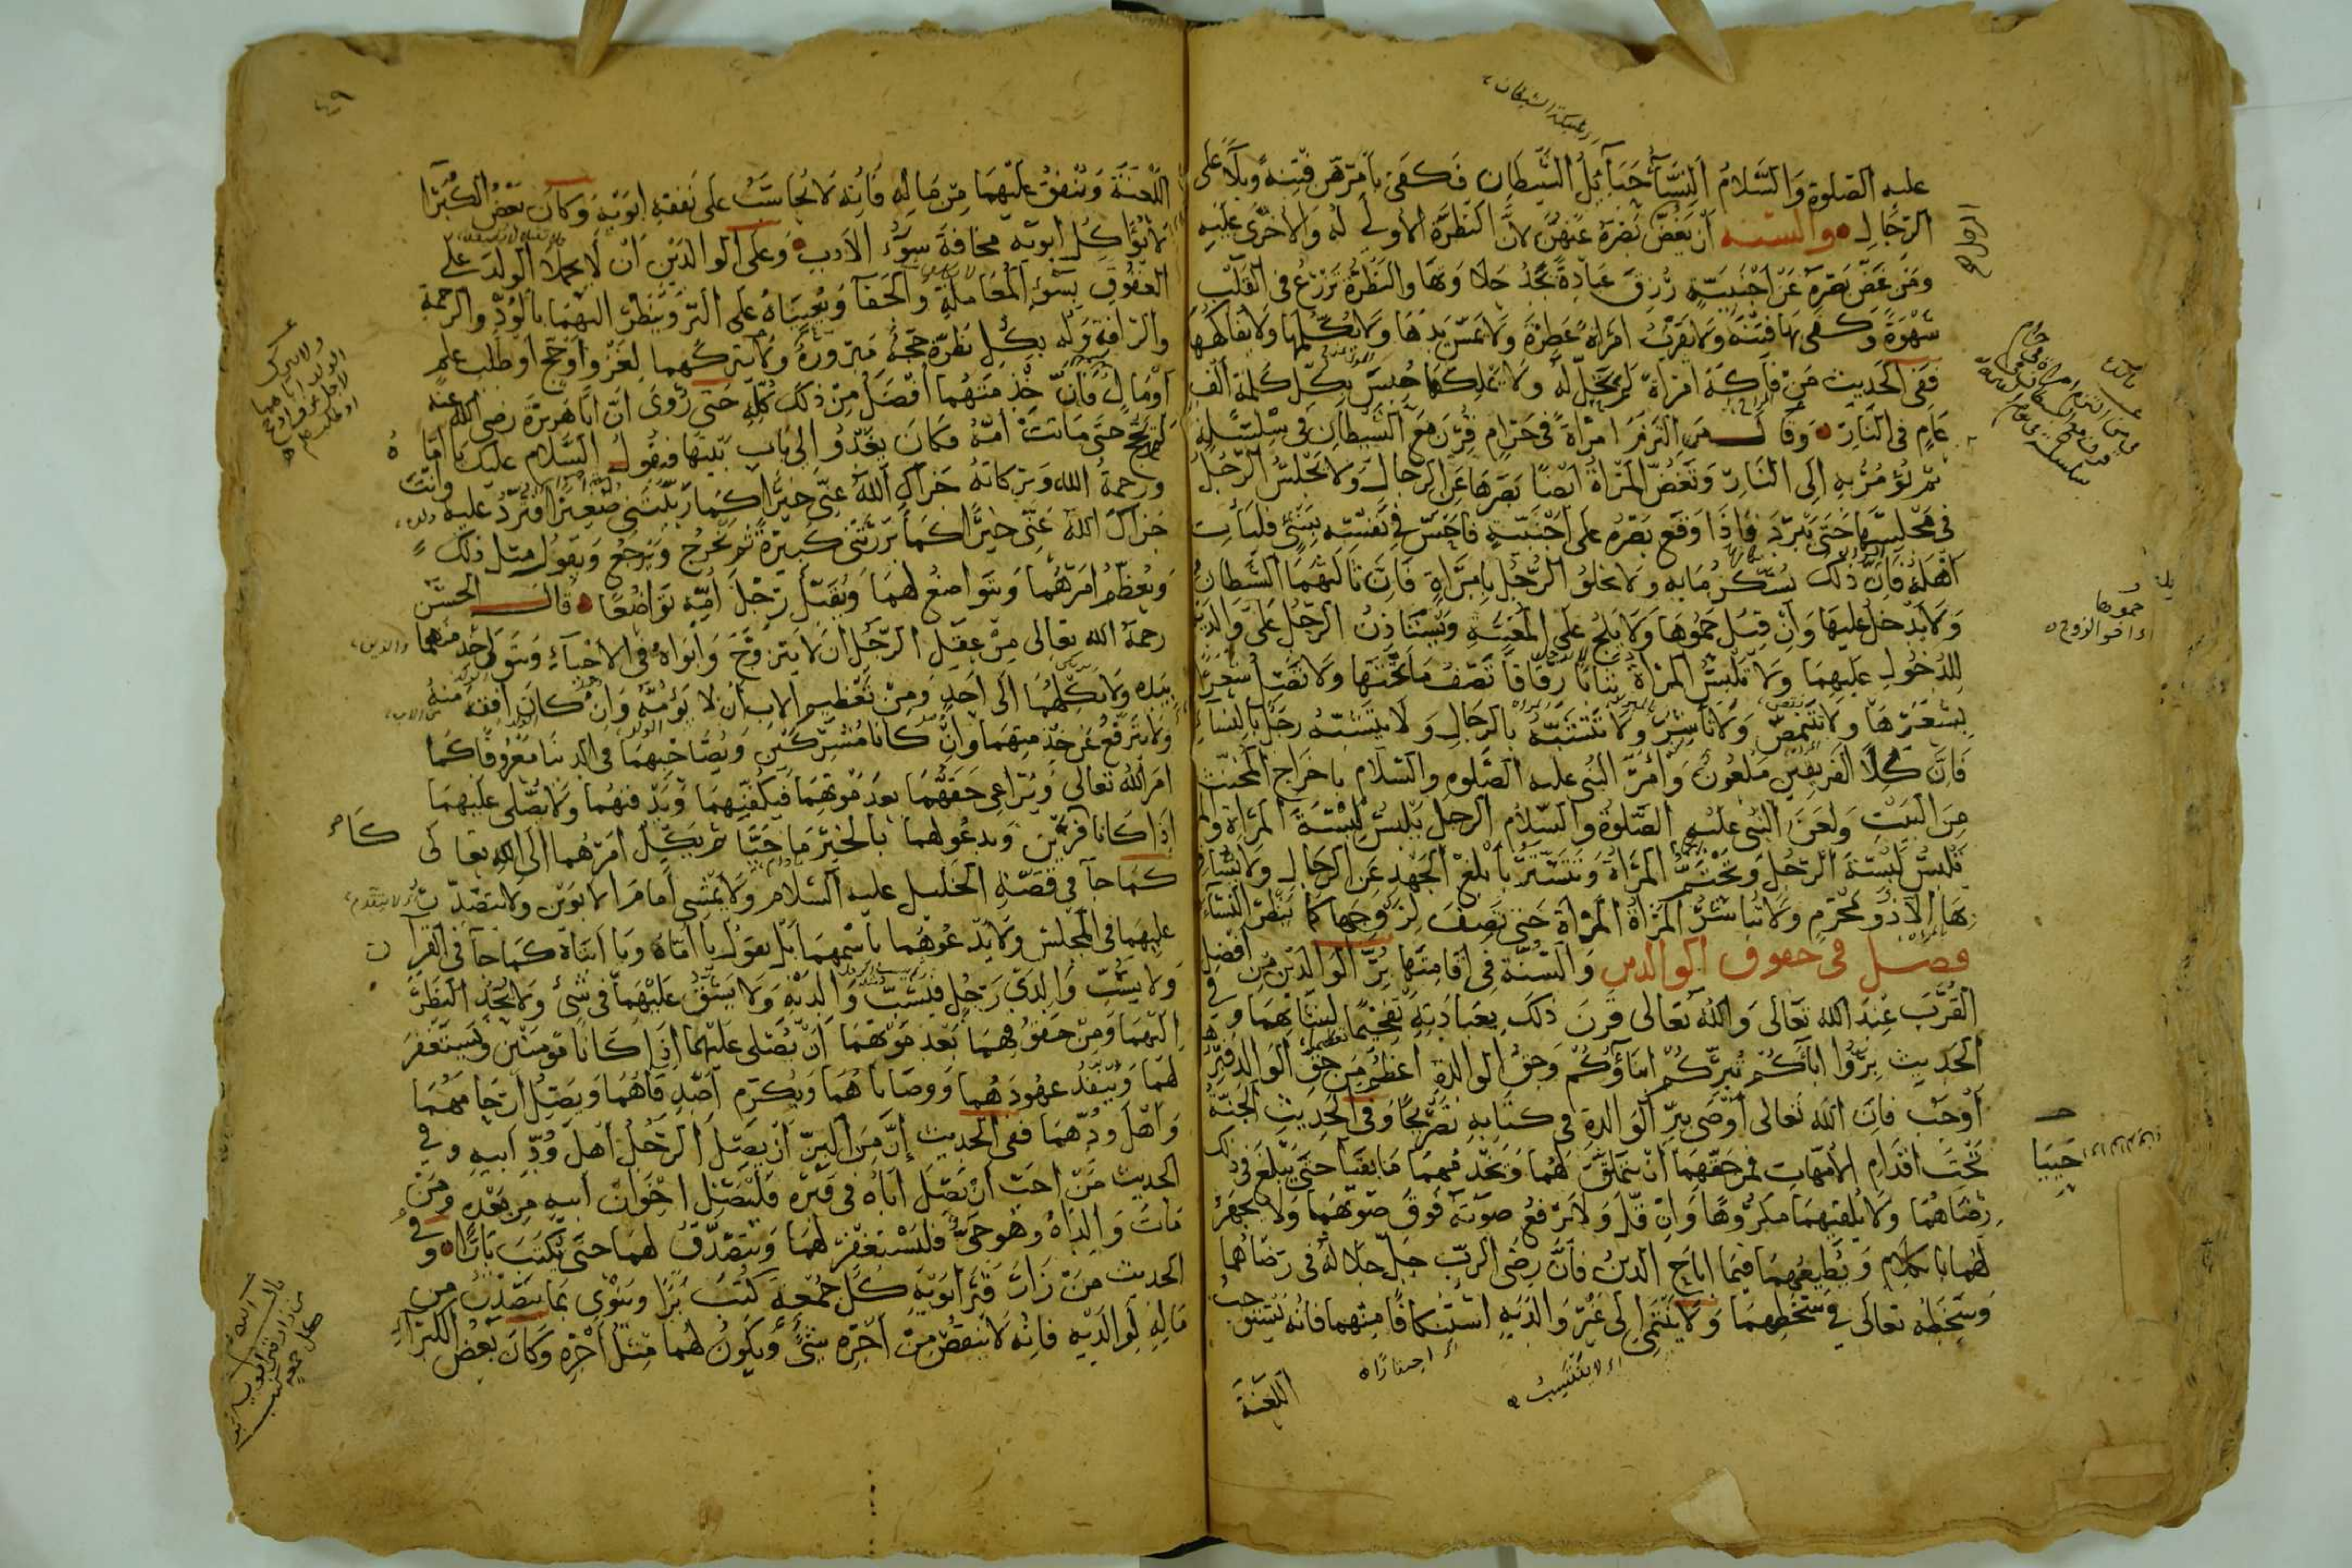 عليه الصلوة والسلام النساء حبائل الشيطان فكفى بامرهن فتنة وبلاء على
الرجال والسنه ان يغض بصره عنهن لان النظرة الاولى له والاخرى عليه
ومن غض بصره عن اجنبية رزق عبادة يجد حلاوتها والنظرة تزرع في القلب
شهوة وكفى بها فتنة ولا يقرب امراة عطرة ولا يمس يدها ولا يكلمها ولا يفاكهها
ففى الحديث من فاكه امراة لم تحل له ولا يملكها حبس بكل كلمة الف
عام فى النار وقال من التزم امراة فى حرام قرن مع الشيطان فى سلسلة
ثم يؤمر به الى النار وتغض المراة ايضا بصرها عن الرجال ولا يجلس الرجل
فى مجلسها حتى يبرد فاذا وقع بصره على اجنبية فاحس في نفسه بشئ فليات
اهله فان ذلك يسكن ما به ولا يخلو الرجل بامراة فان ثالثهما الشيطان
ولا يدخل عليها وان قيل حموها ولا يلج على المغيبة ويستاذن الرجل على والديه
للدخول عليهما ولا تلبس المراة ثيابا رقاقا تصف ما تحتها ولا تصل شعرا
بشعرها ولا تتنمص ولا تاشر ولا تتشبه بالرجال ولا يتشبه رجل بالنساء
فان كلا الفريقين ملعون وامر النبى عليه الصلوه والسلام باخراج المخنث
من البيت ولعن النبى عليه الصلوة والسلام الرجل يلبس لبسة المراة والمراة
تلبس لبسة الرجل وتحتشم المراة وتتستر بابلغ الجهد عن الرجال ولا يسافر
بها الا ذو محرم ولا تباشر المراة المراة حتى تصف لزوجها كما ينظر النساء
فصل فى حقوق الوالدين والسنة فى اقامتها بر الوالدين من افضل
القرب عند الله تعالى والله تعالى قرن ذلك بعبادته تفخيما لشانهما وفي
الحديث بروا اباءكم تبركم ابناؤكم وحق الوالدة اعظم من حق الوالد فبرها
اوجب فان الله تعالى اوصى ببر الوالدة فى كتابه تصريحا وفى الحديث الجنة
تحت اقدام الامهات فمن حقهما ان يتملق لهما ويخدمهما ما بقيا حتى يبلغ فى ذلك
رضاهما ولا يلقيهما مكروها وان قل ولا يرفع صوته فوق صوتهما ولا يجهر
لهما بالكلام ويطيعهما فيما اباح الدين فان رضى الرب جل جلاله فى رضاهما
وسخطه تعالى في سخطهما ولا ينتمى الى غير والديه استنكافا منهما فانه يستوجب
اللعنة
اللعنة وينفق عليهما من ماله فانه لا يحاسب على نفقة ابويه وكان بعض الكبرا
لا يؤاكل ابويه مخافة سوء الادب وعلى الوالدين ان لا يحملا الولد على
العقوق بسوء المعاملة والجفا ويعيناه على البر وينظر اليهما بالود والرحمة
والرافة وله بكل نظرة حجة مبرورة ولا يتركهما لغزو او حج او طلب علم
او مال فان خدمتهما افضل من ذلك كله حتى روى ان ابا هريرة رضى الله عنه
لم يحج حتى ماتت امه وكان يغدو الى باب بيتها فيقول السلام عليك يا اماه
ورحمة الله وبركاته جزاك الله عنى خيرا كما ربيتنى صغيرا فترد عليه وانت
جزاك الله عنى خيرا كما بررتنى كبيرة ثم يخرج ويرجع ويقول مثل ذلك
ويعظم امرهما ويتواضع لهما ويقبل رجل امه تواضعا قال الحسن
رحمه الله تعالى من عقل الرجل ان لا يتزوج وابواه فى الاحياء ويتولى خدمتهما
بيده ولا يكلهما الى احد ومن تعظيم الاب ان لا يؤمه وان كان افقه منه
ولا يترفع عن خدمتهما وان كانا مشركين ويصاحبهما فى الدنيا معروفا كما
امر الله تعالى ويراعى حقهما بعد موتهما فيكفنهما ويدفنهما ولا يصلى عليهما
اذا كانا كافرين ويدعو لهما بالخير ما حييا ثم يكل امرهما الى الله تعالى
كما جا في قصة الخليل عليه السلام ولا يمشى امام الابوين ولا يتصدر
عليهما فى المجلس ولا يدعوهما باسمهما بل يقول يا اماه ويا ابتاه كما جا فى القرآن
ولا يسب والدى رجل فيسب والديه ولا يشق عليهما فى شئ ولا يحد النظر
اليهما ومن حقوقهما بعد موتهما ان يصلى عليهما اذا كانا مؤمنين ويستغفر
لهما وينفذ عهودهما ووصاياهما ويكرم اصدقاهما ويصل ارحامهما
واهل ودهما ففى الحديث ان من البر ان يصل الرجل اهل ود ابيه وفي
الحديث من احب ان يصل اباه فى قبره فليصل اخوان ابيه من بعده ومن
مات والداه وهو حى فليستغفر لهما ويتصدق لهما حتى يكتب بارا وفي
الحديث من زار قبر ابويه كل جمعة كتب برا وينوى بما يتصدق من
ماله لوالديه فانه لا ينقص من اجره شئ ويكون لهما مثل اجره وكان بعض الكبراء